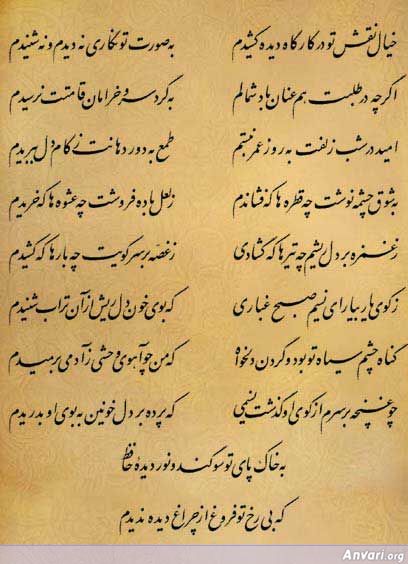 خیال نقش تو در کارگاه دیده کشیدم به صورت تو نگاری نه دیدم و نه شنیدم
اگرچه در طلبت هم عنان باد شمالم به گرد سرو خرامان قامتت نرسیدم
امید در شب زلفت به روز عمر نبستم طمع به دور دهانت ز کام دل ببریدم
به شوق چشمه نوشت چه قطره‌ها که فشاندم ز لعل باده فروشت چه عشوه‌ها که خریدم
ز غمزه بر دل ریشم چه تیرها که گشادی ز غصه بر سر کویت چه بارها که کشیدم
ز کوی یار بیار ای نسیم صبح غباری که بوی خون دل ریش از آن تراب شنیدم
گناه چشم سیاه تو بود و گردن دلخواه که من چو آهوی وحشی ز آدمی برمیدم
چو غنچه بر سرم از کوی او گذشت نسیمی که پرده بر دل خونین به بوی او بدریدم
به خاک پای تو سوگند و نور دیده حافظ
که بی رخ تو فروغ از چراغ دیده ندیدم
Anvari.org